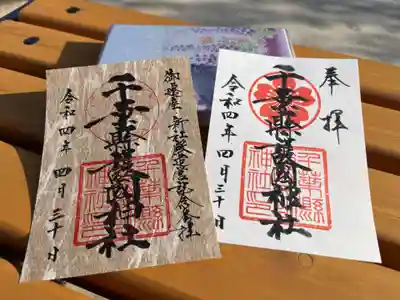 奉拝
千葉縣護國神社
令和四年 四月三十日
御遷座 新社殿 記念
千葉縣護國神社
令和四年 四月三十日